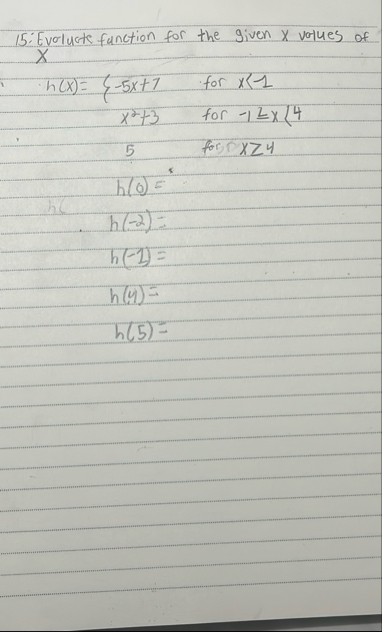 15. Evaluate function for the given x values of
X
h(x) = { -5x+7 for x<-1
x²+3 for -1≤x<4
5 for x≥4
h(0) =
h(-2) =
h(-1) =
h(4) =
h(5) =